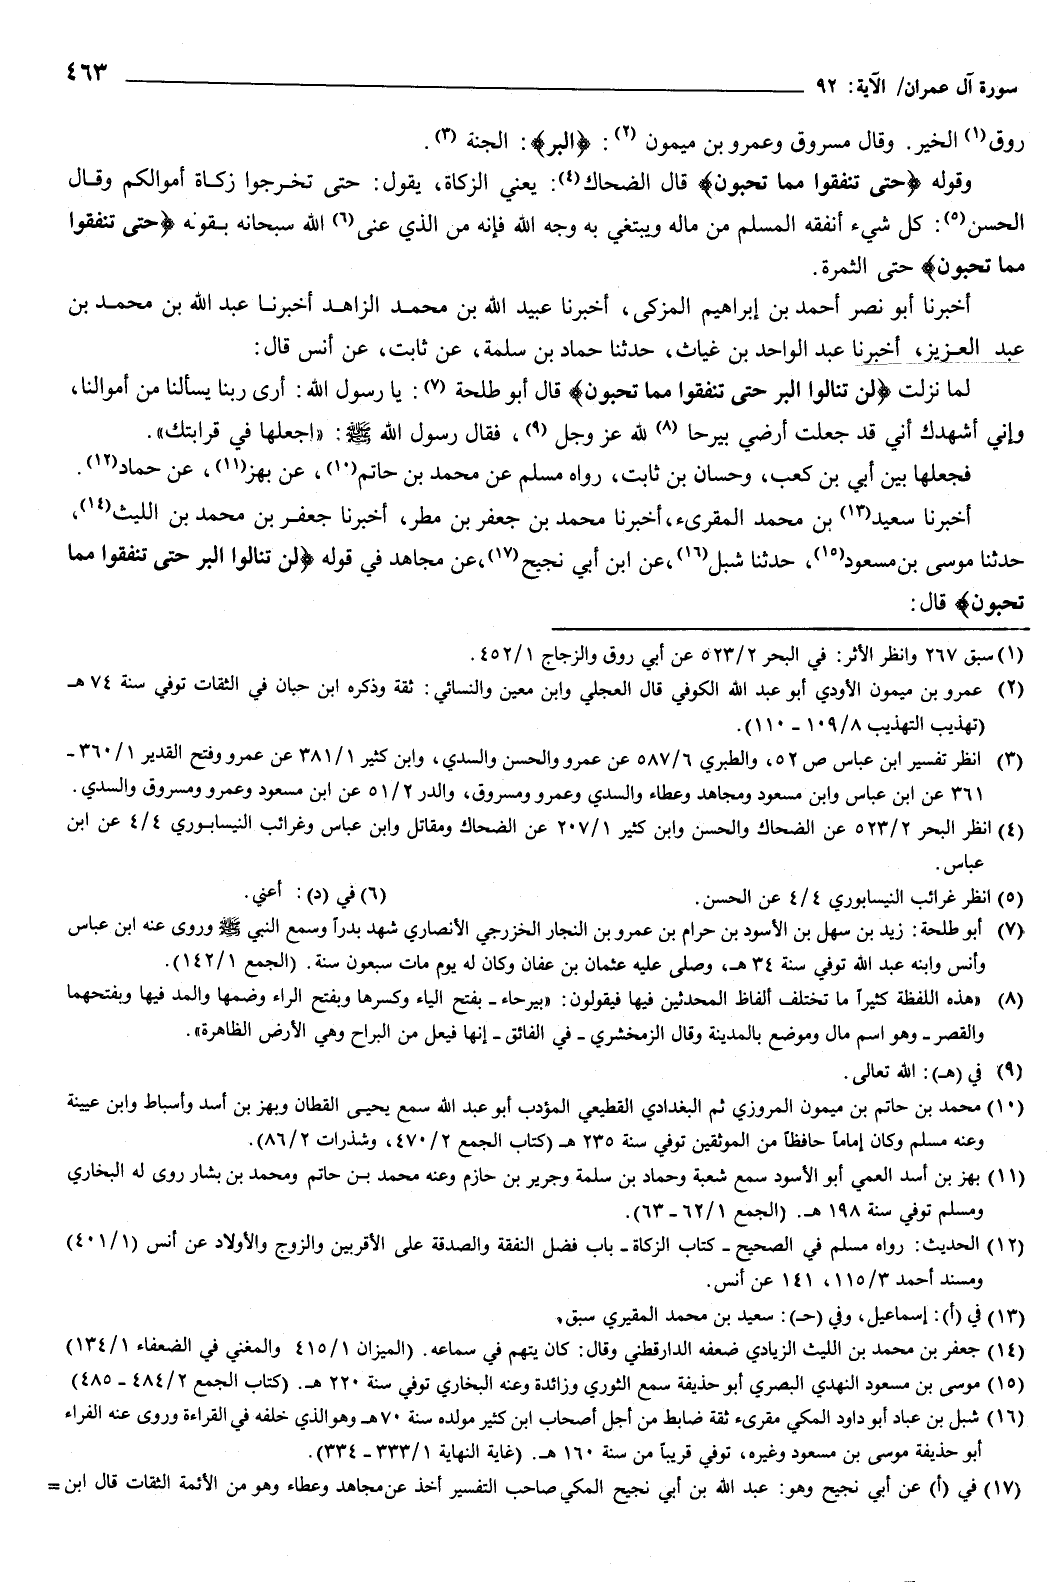 سورة آل عمران/ الآية: ٩٢
٤٦٣
روق(١) الخير. وقال مسروق وعمرو بن ميمون (٢): ﴿البر﴾: الجنة (٣).
وقوله ﴿حتى تنفقوا مما تحبون﴾ قال الضحاك(٤): يعني الزكاة، يقول: حتى تخرجوا زكاة أموالكم وقال
الحسن(٥): كل شيء أنفقه المسلم من ماله ويبتغي به وجه الله فإنه من الذي عنى(٦) الله سبحانه بقوله ﴿حتى تنفقوا
مما تحبون﴾ حتى الثمرة.
أخبرنا أبو نصر أحمد بن إبراهيم المزكى، أخبرنا عبيد الله بن محمد الزاهد أخبرنا عبد الله بن محمد بن
عبد العزيز، أخبرنا عبد الواحد بن غياث، حدثنا حماد بن سلمة، عن ثابت، عن أنس قال:
لما نزلت ﴿لن تنالوا البر حتى تنفقوا مما تحبون﴾ قال أبو طلحة (٧): يا رسول الله: أرى ربنا يسألنا من أموالنا،
وإني أشهدك أني قد جعلت أرضي بيرحا (٨) لله عز وجل (٩)، فقال رسول الله ﷺ: «اجعلها في قرابتك».
فجعلها بين أبي بن كعب، وحسان بن ثابت، رواه مسلم عن محمد بن حاتم(١٠)، عن بهز(١١)، عن حماد(١٢).
أخبرنا سعيد(١٣) بن محمد المقرىء، أخبرنا محمد بن جعفر بن مطر، أخبرنا جعفر بن محمد بن الليث(١٤)،
حدثنا موسى بن مسعود(١٥)، حدثنا شبل(١٦)، عن ابن أبي نجيح(١٧)، عن مجاهد في قوله ﴿لن تنالوا البر حتى تنفقوا مما
تحبون﴾ قال:
(١) سبق ٢٦٧ وانظر الأثر: في البحر ٥٢٣/٢ عن أبي روق والزجاج ٤٥٢/١.
(٢) عمرو بن ميمون الأودي أبو عبد الله الكوفي قال العجلي وابن معين والنسائي: ثقة وذكره ابن حبان في الثقات توفي سنة ٧٤ هـ
(تهذيب التهذيب ١٠٩/٨ - ١١٠).
(٣) انظر تفسير ابن عباس ص ٥٢، والطبري ٥٨٧/٦ عن عمرو والحسن والسدي، وابن كثير ٣٨١/١ عن عمرو وفتح القدير ٣٦٠/١ -
٣٦١ عن ابن عباس وابن مسعود ومجاهد وعطاء والسدي وعمرو ومسروق، والدر ٥١/٢ عن ابن مسعود وعمرو ومسروق والسدي.
(٤) انظر البحر ٥٢٣/٢ عن الضحاك والحسن وابن كثير ٢٠٧/١ عن الضحاك ومقاتل وابن عباس وغرائب النيسابوري ٤/٤ عن ابن
عباس.
(٥) انظر غرائب النيسابوري ٤/٤ عن الحسن. (٦) في (د): أعني.
(٧) أبو طلحة: زيد بن سهل بن الأسود بن حرام بن عمرو بن النجار الخزرجي الأنصاري شهد بدراً وسمع النبي ﷺ وروى عنه ابن عباس
وأنس وابنه عبد الله توفي سنة ٣٤ هـ، وصلى عليه عثمان بن عفان وكان له يوم مات سبعون سنة. (الجمع ١٤٢/١).
(٨) «هذه اللفظة كثيراً ما تختلف ألفاظ المحدثين فيها فيقولون: «بيرحاء - بفتح الياء وكسرها وبفتح الراء وضمها والمد فيها وبفتحهما
والقصر - وهو اسم مال وموضع بالمدينة وقال الزمخشري - في الفائق - إنها فيعل من البراح وهي الأرض الظاهرة».
(٩) في (هـ): الله تعالى.
(١٠) محمد بن حاتم بن ميمون المروزي ثم البغدادي القطيعي المؤدب أبو عبد الله سمع يحيى القطان وبهز بن أسد وأسباط وابن عيينة
وعنه مسلم وكان إماماً حافظاً من الموثقين توفي سنة ٢٣٥ هـ (كتاب الجمع ٤٧٠/٢، وشذرات ٨٦/٢).
(١١) بهز بن أسد العمي أبو الأسود سمع شعبة وحماد بن سلمة وجرير بن حازم وعنه محمد بن حاتم ومحمد بن بشار روى له البخاري
ومسلم توفي سنة ١٩٨ هـ. (الجمع ٦٢/١ - ٦٣).
(١٢) الحديث: رواه مسلم في الصحيح - كتاب الزكاة - باب فضل النفقة والصدقة على الأقربين والزوج والأولاد عن أنس (٤٠١/١)
ومسند أحمد ١١٥/٣، ١٤١ عن أنس.
(١٣) في (أ): إسماعيل، وفي (حـ): سعيد بن محمد المقيري سبق.
(١٤) جعفر بن محمد بن الليث الزيادي ضعفه الدارقطني وقال: كان يتهم في سماعه. (الميزان ٤١٥/١ والمغني في الضعفاء ١٣٤/١)
(١٥) موسى بن مسعود النهدي البصري أبو حذيفة سمع الثوري وزائدة وعنه البخاري توفي سنة ٢٢٠ هـ. (كتاب الجمع ٤٨٤/٢ - ٤٨٥)
(١٦) شبل بن عباد أبو داود المكي مقرىء ثقة ضابط من أجل أصحاب ابن كثير مولده سنة ٧٠ هـ وهو الذي خلفه في القراءة وروى عنه الفراء
أبو حذيفة موسى بن مسعود وغيره، توفي قريباً من سنة ١٦٠ هـ. (غاية النهاية ٣٣٣/١ - ٣٣٤).
(١٧) في (أ) عن أبي نجيح وهو: عبد الله بن أبي نجيح المكي صاحب التفسير أخذ عن مجاهد وعطاء وهو من الأئمة الثقات قال ابن =